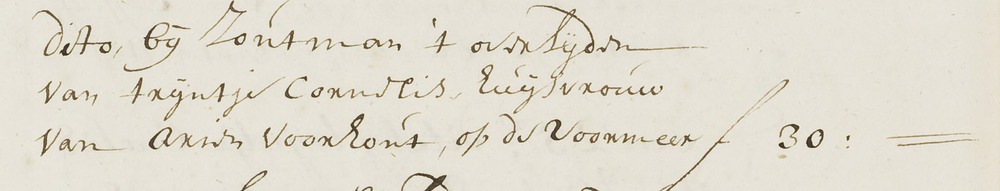 dito, bÿ Zoutman 't overlÿden
van trÿntje Cornelis, huÿsvrouw
van Arien Voorhout, op de Voormeer f 30 : =